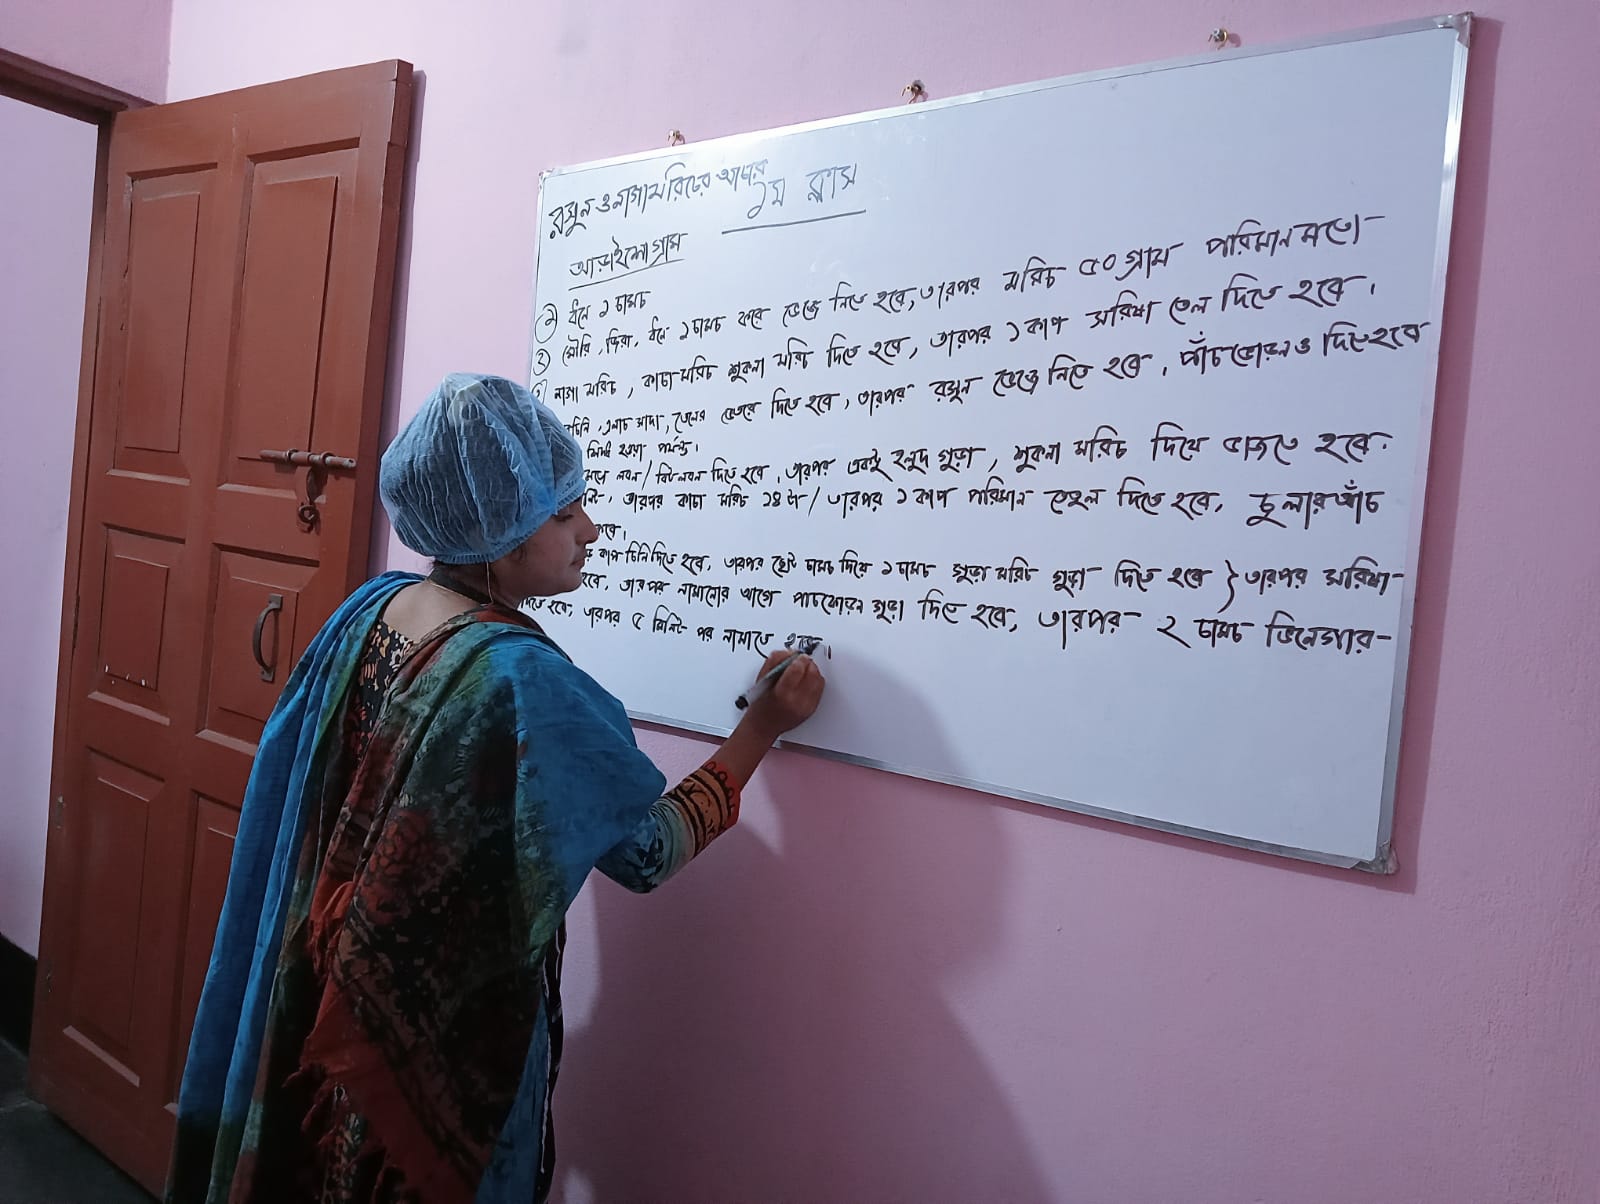 রসুন ও নাগা মরিচের আচার
১ম ক্লাস
আড়াইশো গ্রাম
১ ধনে ১ চামচ
২ মৌরি, জিরা, ধনে ১ চামচ করে ভেজে নিতে হবে, তারপর মরিচ ৫০ গ্রাম পরিমান মতো
নাগা মরিচ, কাচা মরিচ শুকনা মরিচ দিতে হবে, তারপর ১ কাপ সরিষা তেল দিতে হবে।
চিনি, এলাচ সাদা, তেলের ভেতরে দিতে হবে, তারপর রসুন ভেজে নিতে হবে, পাঁচফোড়নও দিতে হবে
মিনিট হওয়া পর্যন্ত।
লবন / বিট লবন দিতে হবে, তারপর একটু হলুদ গুড়া, শুকনা মরিচ দিয়ে ভাজতে হবে।
তারপর কাচা মরিচ ১৪ টা / তারপর ১ কাপ পরিমান তেতুল দিতে হবে, চুলার আঁচ
করে।
কাপ চিনি দিতে হবে, তারপর ছোট চামচ দিয়ে ১ চামচ গুড়া মরিচ গুড়া দিতে হবে } তারপর সরিষা
হবে, তারপর নামানোর আগে পাচফোড়ন গুড়া দিতে হবে, তারপর ২ চামচ ভিনেগার
দিতে হবে, তারপর ৫ মিনিট পর নামাতে হবে।